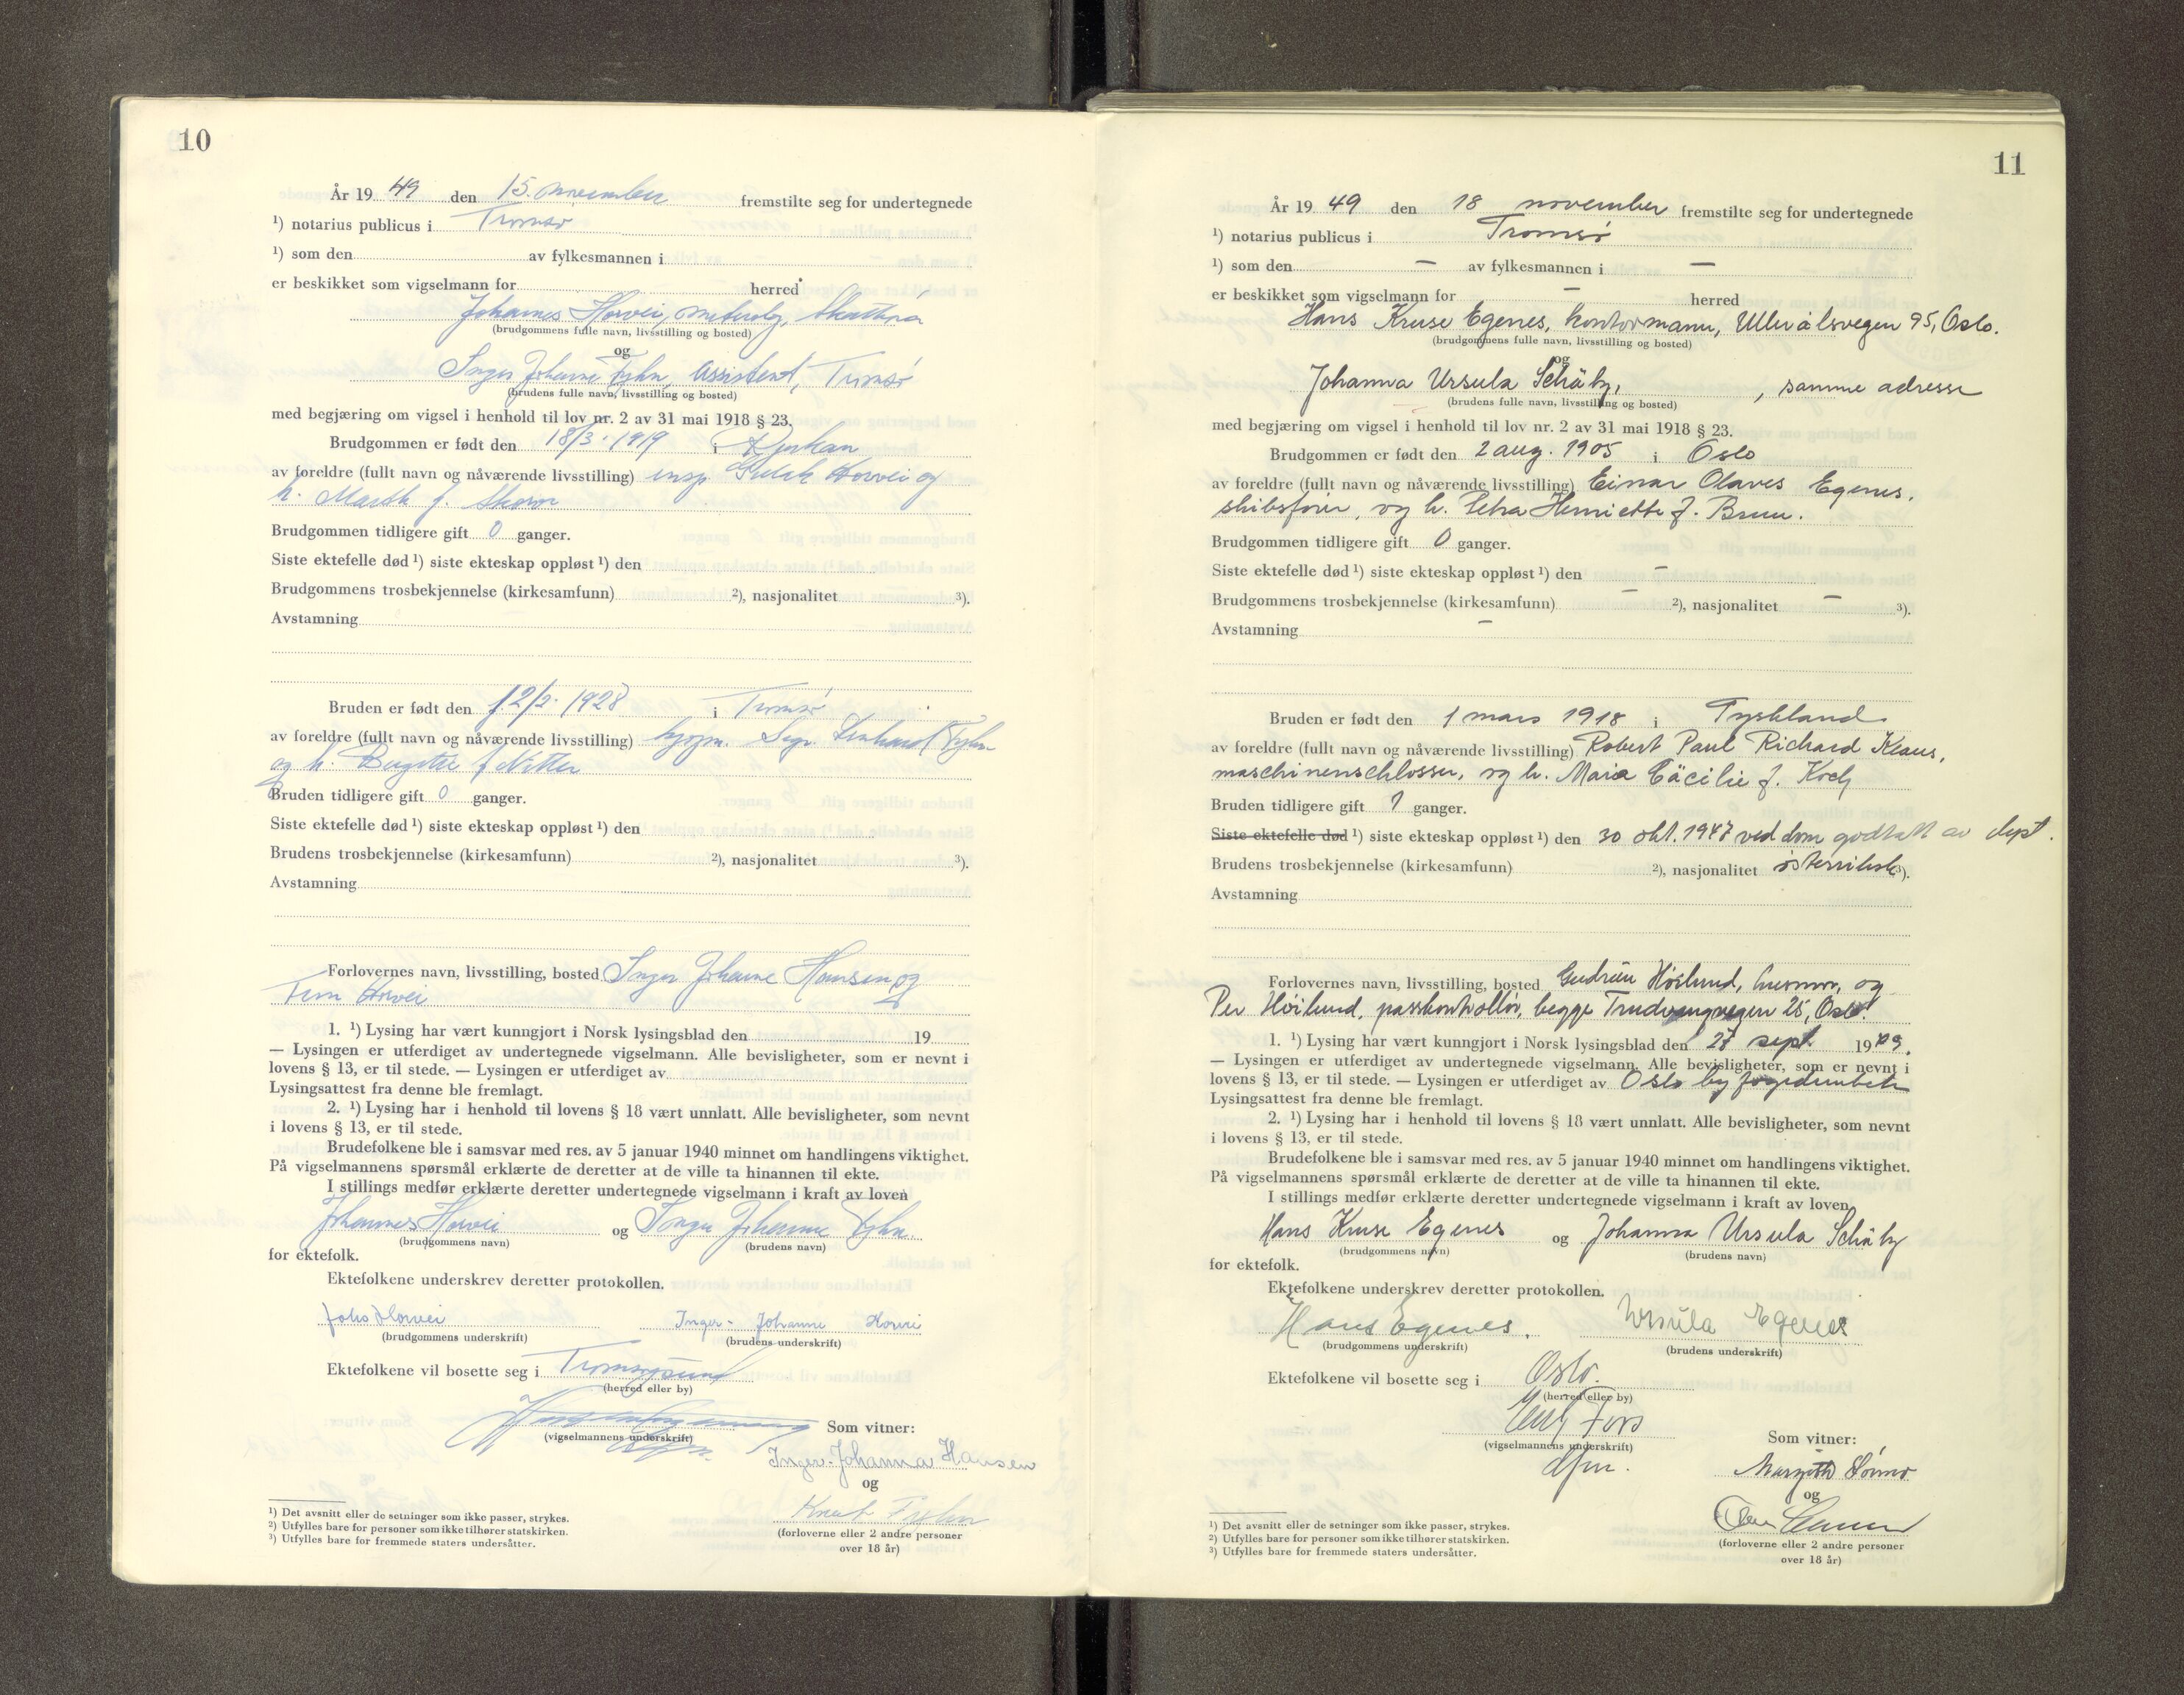 10
År 19 49 den 15. november fremstilte seg for undertegnede
¹) notarius publicus i Tromsø
¹) som den av fylkesmannen i
er beskikket som vigselmann for herred
Johannes Horvei, meteorolog, Skattøra
(brudgommens fulle navn, livsstilling og bosted)
og
Inger Johanne Fyhn, assistent, Tromsø
(brudens fulle navn, livsstilling og bosted)
med begjæring om vigsel i henhold til lov nr. 2 av 31 mai 1918 § 23.
Brudgommen er født den 18/3. 1919 i Rjukan
av foreldre (fullt navn og nåværende livsstilling) insp. Horvei og
h. f.
Brudgommen tidligere gift 0 ganger.
Siste ektefelle død ¹) siste ekteskap oppløst ¹) den
Brudgommens trosbekjennelse (kirkesamfunn) ²), nasjonalitet ³).
Avstamning
Bruden er født den 12/2. 1928 i Tromsø
av foreldre (fullt navn og nåværende livsstilling) Fyhn
og h. f.
Bruden tidligere gift 0 ganger.
Siste ektefelle død ¹) siste ekteskap oppløst ¹) den
Brudens trosbekjennelse (kirkesamfunn) ²), nasjonalitet ³).
Avstamning
Forlovernes navn, livsstilling, bosted Inger Johanne Hansen og
Horvei
1. ¹) Lysing har vært kunngjort i Norsk lysingsblad den 19
— Lysingen er utferdiget av undertegnede vigselmann. Alle bevisligheter, som er nevnt i
lovens § 13, er til stede. — Lysingen er utferdiget av
Lysingsattest fra denne ble fremlagt.
2. ¹) Lysing har i henhold til lovens § 18 vært unnlatt. Alle bevisligheter, som nevnt
i lovens § 13, er til stede.
Brudefolkene ble i samsvar med res. av 5 januar 1940 minnet om handlingens viktighet.
På vigselmannens spørsmål erklærte de deretter at de ville ta hinannen til ekte.
I stillings medfør erklærte deretter undertegnede vigselmann i kraft av loven
Johannes Horvei og Inger Johanne Fyhn
(brudgommens navn) (brudens navn)
for ektefolk.
Ektefolkene underskrev deretter protokollen.
Johs Horvei Inger-Johanne Horvei
(brudgommens underskrift) (brudens underskrift)
Ektefolkene vil bosette seg i Tromsøysund
(herred eller by)
(vigselmannens underskrift)
Som vitner:
Inger-Johanna Hansen
og
Knut Fyhn
(forloverne eller 2 andre personer
over 18 år)
¹) Det avsnitt eller de setninger som ikke passer, strykes.
²) Utfylles bare for personer som ikke tilhører statskirken.
³) Utfylles bare for fremmede staters undersåtter.
11
År 19 49 den 18 november fremstilte seg for undertegnede
¹) notarius publicus i Tromsø
¹) som den — av fylkesmannen i —
er beskikket som vigselmann for — herred
Hans Kruse Egenes, kontormann, Ullevålsvegen 95, Oslo.
(brudgommens fulle navn, livsstilling og bosted)
og
Johanna Ursula Schäby, , samme adresse
(brudens fulle navn, livsstilling og bosted)
med begjæring om vigsel i henhold til lov nr. 2 av 31 mai 1918 § 23.
Brudgommen er født den 2 aug. 1905 i Oslo
av foreldre (fullt navn og nåværende livsstilling) Einar Olaves Egenes,
skibsfører, og h. Petra Henriette f. Bruu.
Brudgommen tidligere gift 0 ganger.
Siste ektefelle død ¹) siste ekteskap oppløst ¹) den —
Brudgommens trosbekjennelse (kirkesamfunn) — ²), nasjonalitet — ³).
Avstamning —
Bruden er født den 1 mars 1918 i Tyskland
av foreldre (fullt navn og nåværende livsstilling) Robert Paul Richard Klaus,
maschinenschlosser, og h. Maria Cäcilie f. Koch
Bruden tidligere gift 1 ganger.
Siste ektefelle død ¹) siste ekteskap oppløst ¹) den 30 okt. 1947 ved dom godtatt av dept.
Brudens trosbekjennelse (kirkesamfunn) ²), nasjonalitet østerriksk ³).
Avstamning
Forlovernes navn, livsstilling, bosted Gudrun Høilund, husmor, og
Per Höilund, passkontrollør, begge Trudvangvegen 25, Oslo.
1. ¹) Lysing har vært kunngjort i Norsk lysingsblad den 27 sept 1949.
— Lysingen er utferdiget av undertegnede vigselmann. Alle bevisligheter, som er nevnt i
lovens § 13, er til stede. — Lysingen er utferdiget av Oslo byfogdembete
Lysingsattest fra denne ble fremlagt.
2. ¹) Lysing har i henhold til lovens § 18 vært unnlatt. Alle bevisligheter, som nevnt
i lovens § 13, er til stede.
Brudefolkene ble i samsvar med res. av 5 januar 1940 minnet om handlingens viktighet.
På vigselmannens spørsmål erklærte de deretter at de ville ta hinannen til ekte.
I stillings medfør erklærte deretter undertegnede vigselmann i kraft av loven
Hans Kruse Egenes og Johanna Ursula Schäby
(brudgommens navn) (brudens navn)
for ektefolk.
Ektefolkene underskrev deretter protokollen.
Hans Egenes. Ursula Egenes
(brudgommens underskrift) (brudens underskrift)
Ektefolkene vil bosette seg i Oslo.
(herred eller by)
(vigselmannens underskrift)
Som vitner:
og
(forloverne eller 2 andre personer
over 18 år)
¹) Det avsnitt eller de setninger som ikke passer, strykes.
²) Utfylles bare for personer som ikke tilhører statskirken.
³) Utfylles bare for fremmede staters undersåtter.